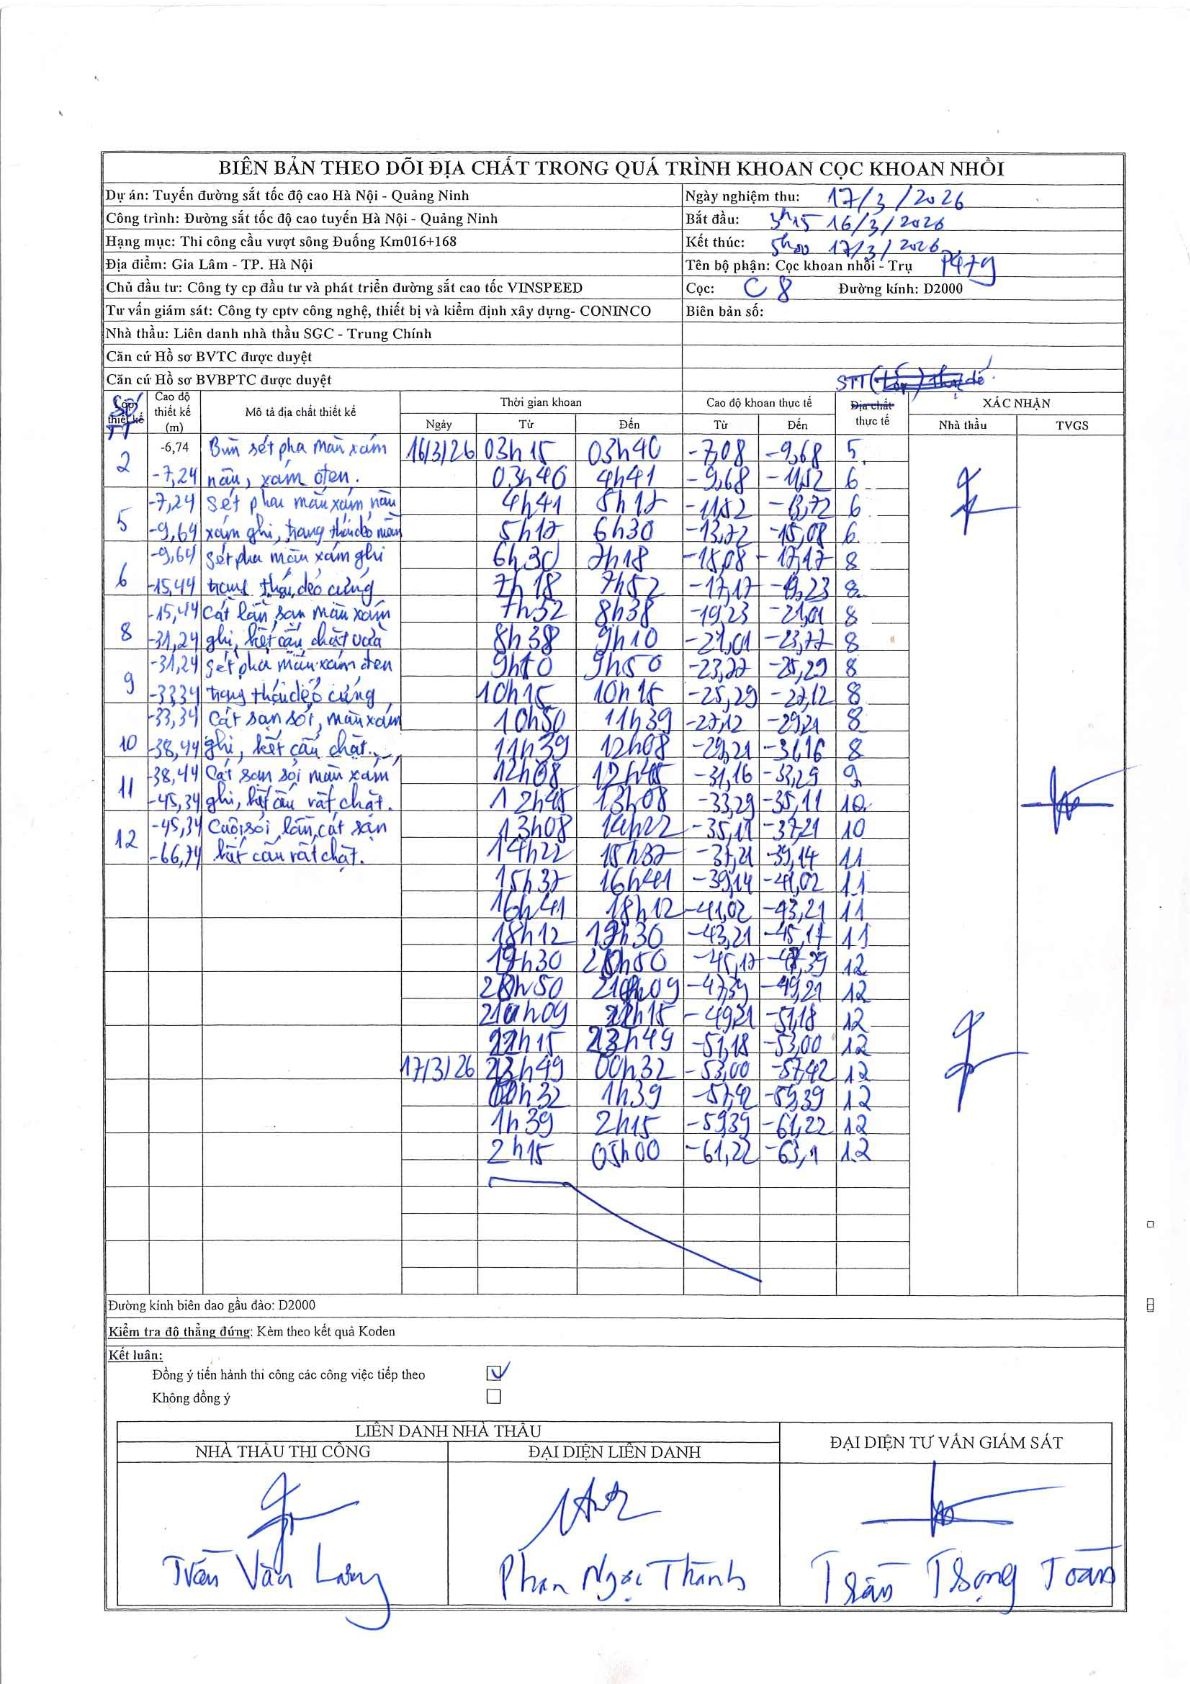 BIÊN BẢN THEO DÕI ĐỊA CHẤT TRONG QUÁ TRÌNH KHOAN CỌC KHOAN NHỒI
Dự án: Tuyến đường sắt tốc độ cao Hà Nội - Quảng Ninh Ngày nghiệm thu: 17/3/2026
Công trình: Đường sắt tốc độ cao tuyến Hà Nội - Quảng Ninh Bắt đầu: 3h15 16/3/2026
Hạng mục: Thi công cầu vượt sông Đuống Km016+168 Kết thúc: 5h00 17/3/2026
Địa điểm: Gia Lâm - TP. Hà Nội Tên bộ phận: Cọc khoan nhồi - Trụ
Chủ đầu tư: Công ty cp đầu tư và phát triển đường sắt cao tốc VINSPEED Cọc: C8 Đường kính: D2000
Tư vấn giám sát: Công ty cptv công nghệ, thiết bị và kiểm định xây dựng- CONINCO Biên bản số:
Nhà thầu: Liên danh nhà thầu SGC - Trung Chính
Căn cứ Hồ sơ BVTC được duyệt
Căn cứ Hồ sơ BVBPTC được duyệt
STT
Lớp thiết kế Cao độ thiết kế (m) Mô tả địa chất thiết kế Thời gian khoan Cao độ khoan thực tế Địa chất thực tế XÁC NHẬN
STT
Ngày Từ Đến Từ Đến Nhà thầu TVGS
2 -6,74 Bùn sét pha màu xám 16/3/26 03h15 03h40 -7,08 -9,68 5
-7,24 nâu, xám đen. 03h40 4h41 -9,68 -11,52 6
5 -7,24 Sét pha màu xám nâu 4h41 5h17 -11,52 -13,72 6
-9,64 xám ghi, trạng thái dẻo mềm 5h17 6h30 -13,72 -15,08 6
6 -9,64 Sét pha màu xám ghi 6h30 7h18 -15,08 -17,17 8
-15,44 trạng thái dẻo cứng 7h18 7h52 -17,17 -19,23 8
8 -15,44 Cát lẫn sạn màu xám 7h52 8h38 -19,23 -21,01 8
-31,24 ghi, kết cấu chặt vừa 8h38 9h10 -21,01 -23,77 8
9 -31,24 Sét pha màu xám đen 9h10 9h50 -23,77 -25,29 8
-33,34 trạng thái dẻo cứng 10h15 10h15 -25,29 -27,12 8
10 -33,34 Cát sạn sỏi, màu xám 10h50 11h39 -27,12 -29,21 8
-38,44 ghi, kết cấu chặt. 11h39 12h08 -29,21 -31,16 8
11 -38,44 Cát sạn sỏi màu xám 12h08 12h45 -31,16 -33,29 9
-45,34 ghi, kết cấu rất chặt. 12h45 13h08 -33,29 -35,11 10
12 -45,34 Cuội sỏi, lẫn cát sạn 13h08 14h22 -35,11 -37,21 10
-66,74 kết cấu rất chặt. 14h22 15h37 -37,21 -39,14 11
15h37 16h41 -39,14 -41,02 11
16h41 18h12 -41,02 -43,21 11
18h12 19h30 -43,21 -45,17 11
19h30 20h50 -45,17 12
20h50 -47,39 -49,21 12
-49,21 -51,18 12
22h15 23h49 -51,18 -53,00 12
17/3/26 23h49 00h32 -53,00 -57,42 12
00h32 1h39 -57,42 -59,39 12
1h39 2h15 -59,39 -61,22 12
2h15 05h00 -61,22 -63,1 12
Đường kính biên dao gầu đào: D2000
Kiểm tra độ thẳng đứng: Kèm theo kết quả Koden
Kết luận:
Đồng ý tiến hành thi công các công việc tiếp theo
Không đồng ý
LIÊN DANH NHÀ THẦU ĐẠI DIỆN TƯ VẤN GIÁM SÁT
NHÀ THẦU THI CÔNG ĐẠI DIỆN LIÊN DANH
Trần Văn Lương Phan Ngọc Thành Trần Trọng Toàn